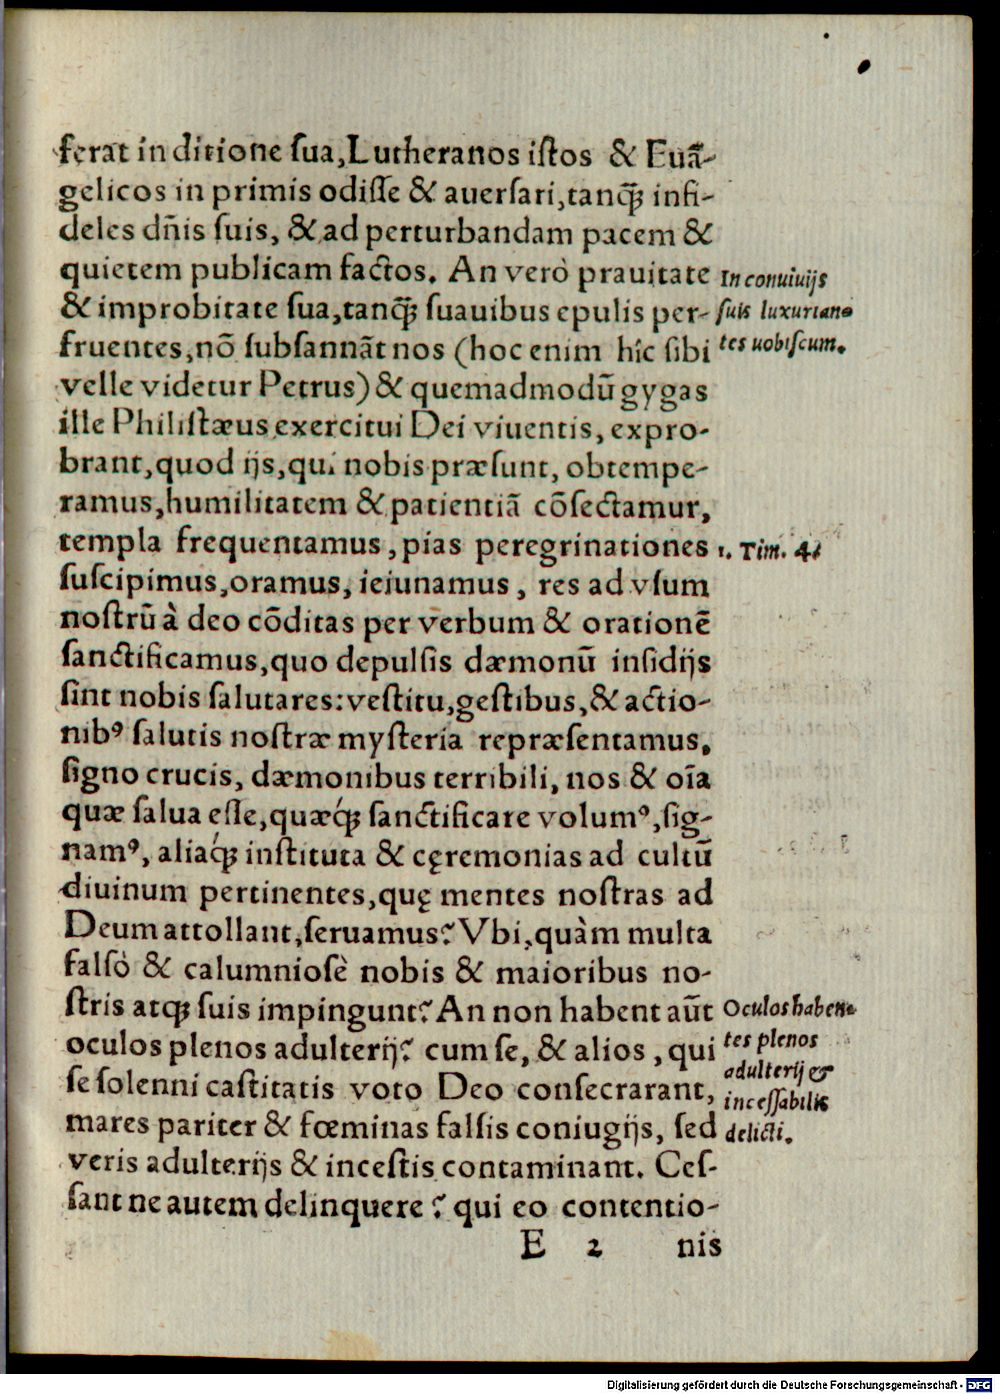 ferat in ditione ſua, Lutheranos iſtos & Euā-
gelicos in primis odiſſe & auerſari, tanq̃ȝ infi-
deles dñis ſuis, & ad perturbandam pacem &
quietem publicam factos. An verò prauitate
In conuiuijs
& improbitate ſua, tanq̃ȝ ſuauibus epulis per-
ſuis luxurian-
fruentes, nō ſubſannāt nos (hoc enim hîc ſibi
tes uobiſcum.
velle videtur Petrus) & quemadmodū gygas
ille Philiſtæus exercitui Dei viuentis, expro-
brant, quod ijs, qui nobis præſunt, obtempe-
ramus, humilitatem & patientiā cōſectamur,
templa frequentamus, pias peregrinationes
1. Tim. 4.
ſuſcipimus, oramus, ieiunamus, res ad vſum
noſtrū à deo cōditas per verbum & orationē
ſanctificamus, quo depulſis dæmonū inſidijs
ſint nobis ſalutares: veſtitu, geſtibus, & actio-
nibꝰ ſalutis noſtræ myſteria repræſentamus.
ſigno crucis, dæmonibus terribili, nos & oīa
quæ ſalua eſſe, quæq́ȝ ſanctificare volumꝰ, ſig-
namꝰ, aliaq́ȝ inſtituta & cęremonias ad cultū
diuinum pertinentes, quę mentes noſtras ad
Deum attollant, ſeruamus? Vbi, quàm multa
falſò & calumnioſè nobis & maioribus no-
ſtris atqȝ ſuis impingunt? An non habent aūt
Oculos haben-
oculos plenos adulterij? cum ſe, & alios, qui
tes plenos
adulterij &
ſe ſolenni caſtitatis voto Deo conſecrarant,
inceſſabilis
mares pariter & fœminas falſis coniugijs, ſed
delicti.
veris adulterijs & inceſtis contaminant. Ceſ-
ſant ne autem delinquere? qui eo contentio-
E 2 nis
Digitalisierung gefördert durch die Deutsche Forschungsgemeinschaft - DFG